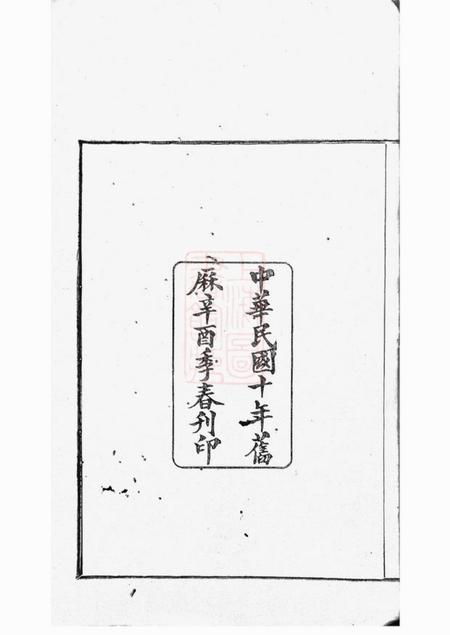 中華民國十年舊
厤辛酉季春刊印